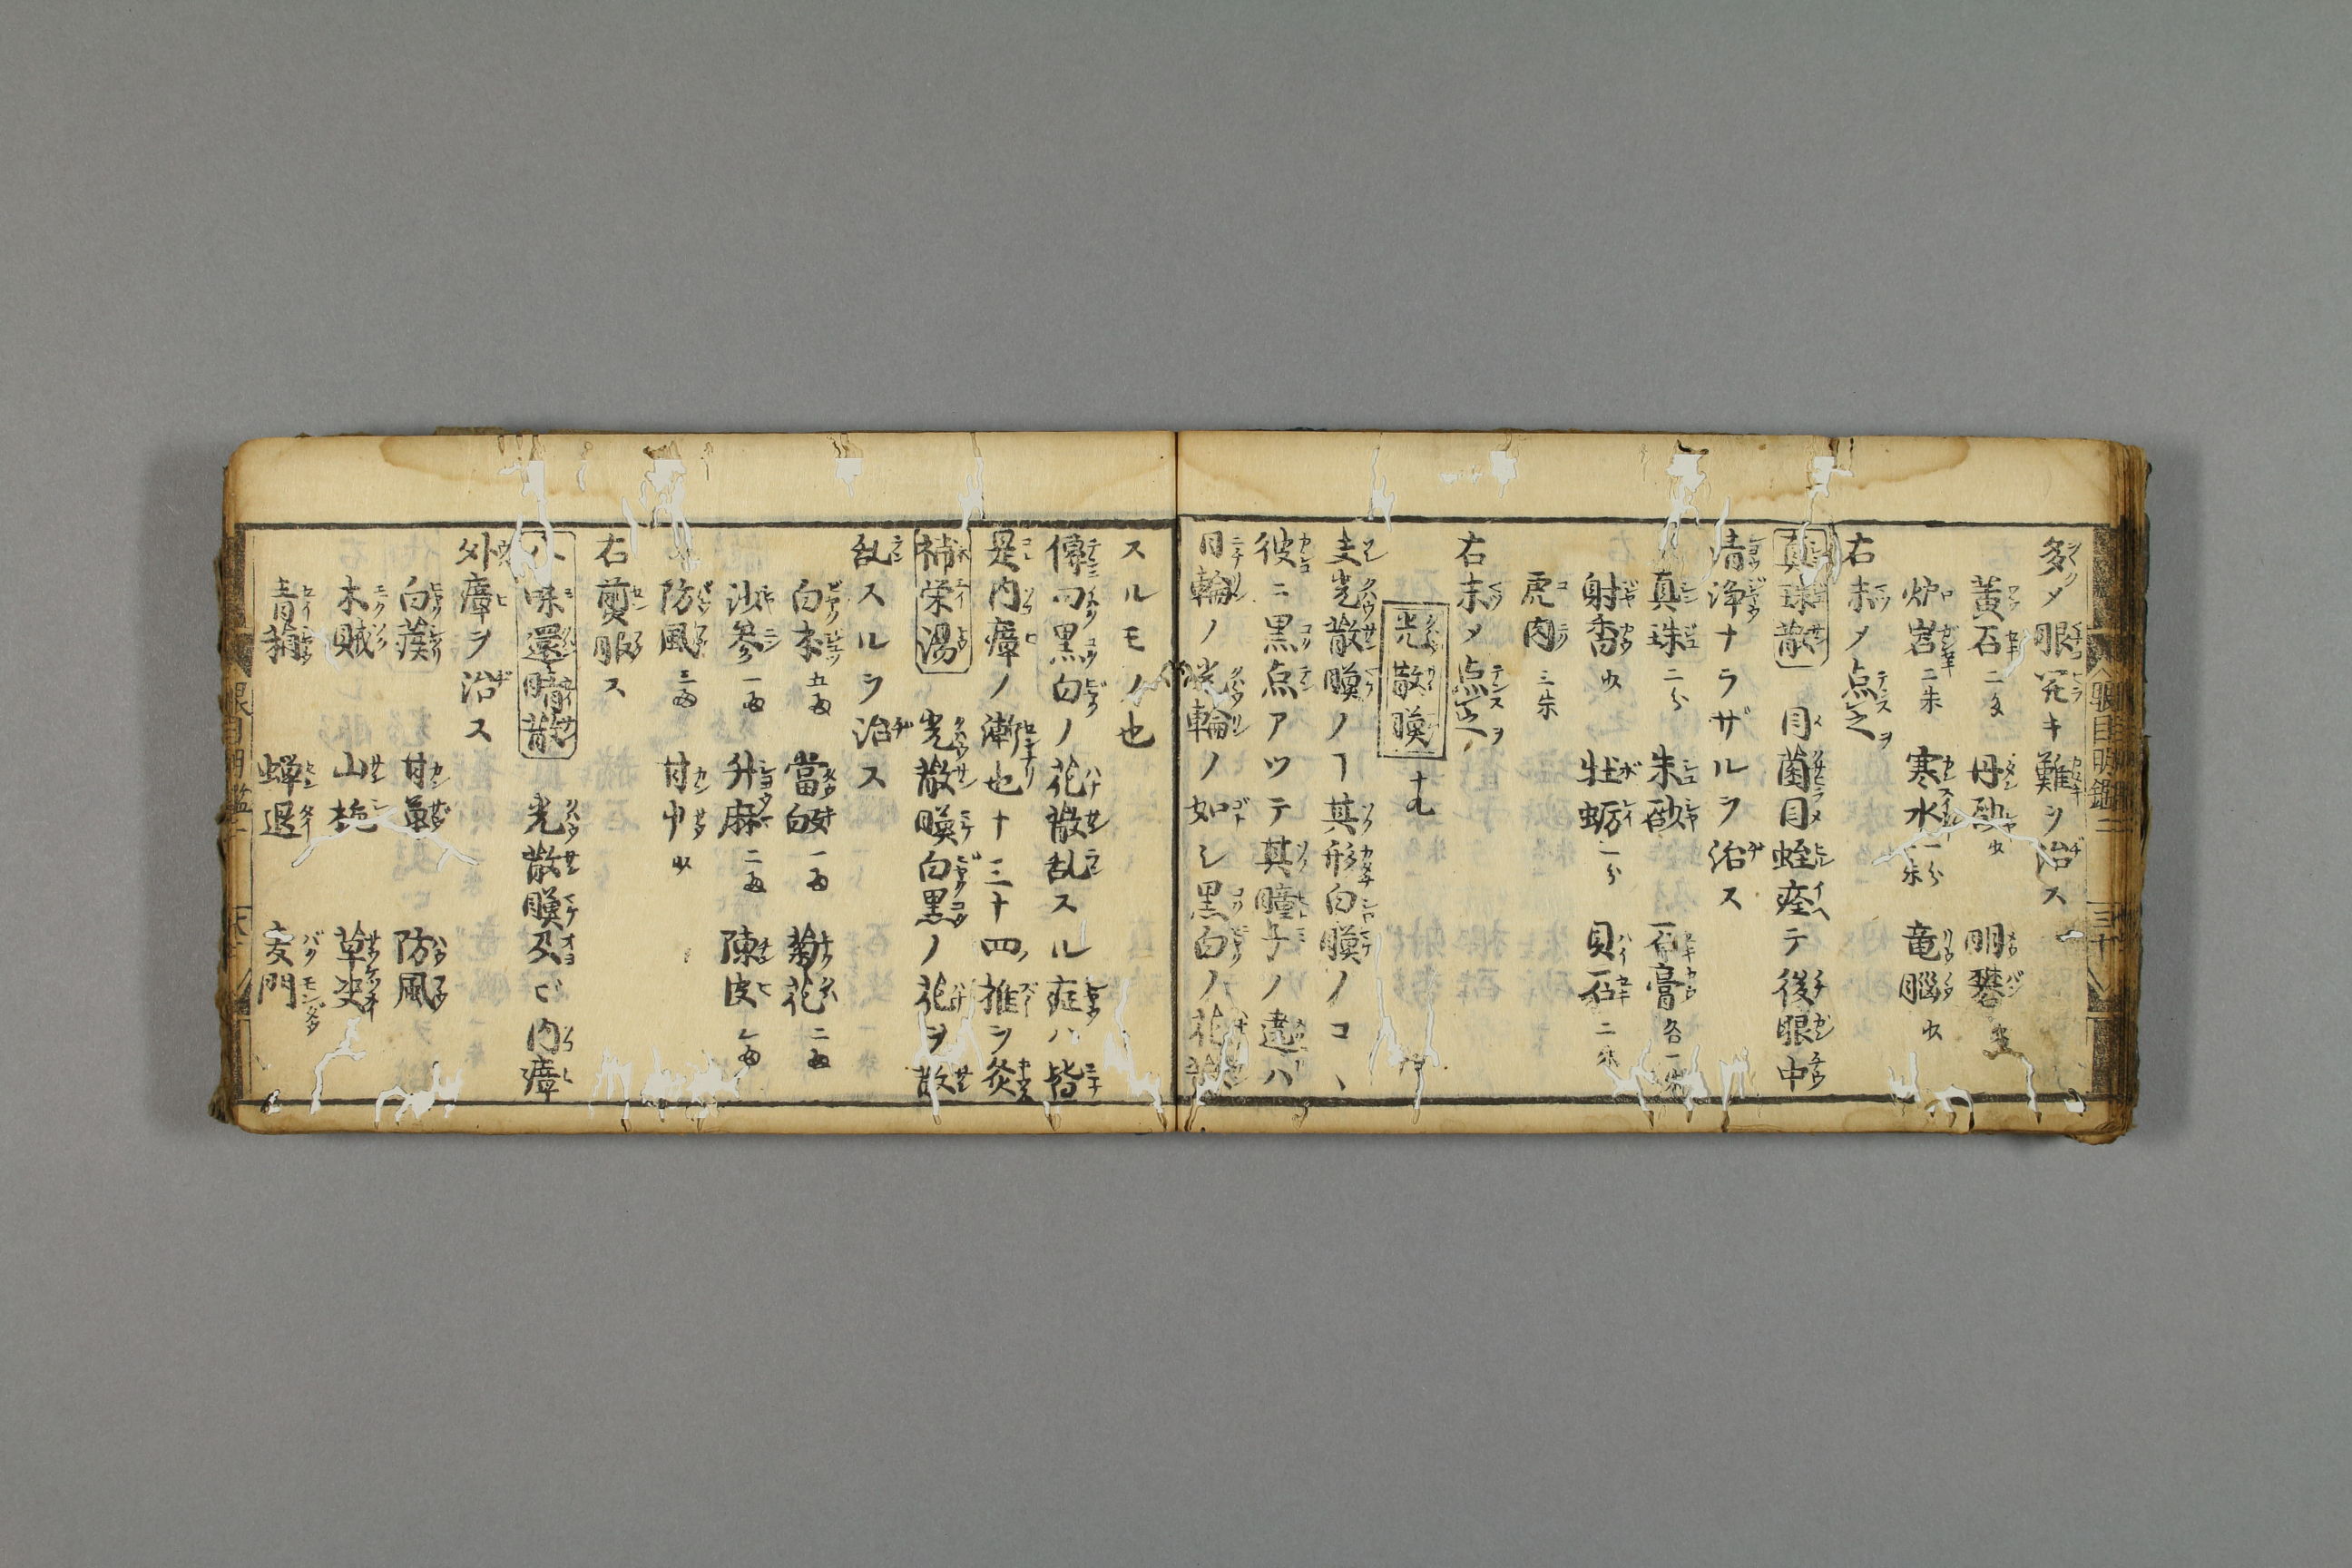 多メ眼発キ難ヲ治ス
黄石二匁 丹砂少 明礬
炉岩二朱 寒水一分 竜腦少
右末メ点之
真珠散 目菌目蛭痊テ後眼中
清浄ナラザルヲ治ス
真珠二分 朱砂 石膏各一朱
射香少 牡蛎一分 貝石二朱
虎肉三朱
右末メ点之
光散瞙 十九
夫光散瞙ノヿ其形白瞙ノコ、
彼ニ黒点アツテ其瞳子ノ遶ハ
日輪ノ光輪ノ如シ黒白ノ花散
スルモノ也
傳曰黒白ノ花散乱スル症ハ皆
是内瘴ノ漸也十三十四ノ推ヲ灸
補栄湯 光散瞙白黒ノ花ヲ散
乱スルヲ治ス
白朮五両 當皈一両 菊花二両
沙参一両 升麻二両 陳皮七両
防風三両 甘中少
右煎服ス
八味還睛散 光散瞙及ビ内瘴
外瘴ヲ治ス
白蒺 甘草 防風
木賊 山梔 草决
青葙 蝉退 麦門